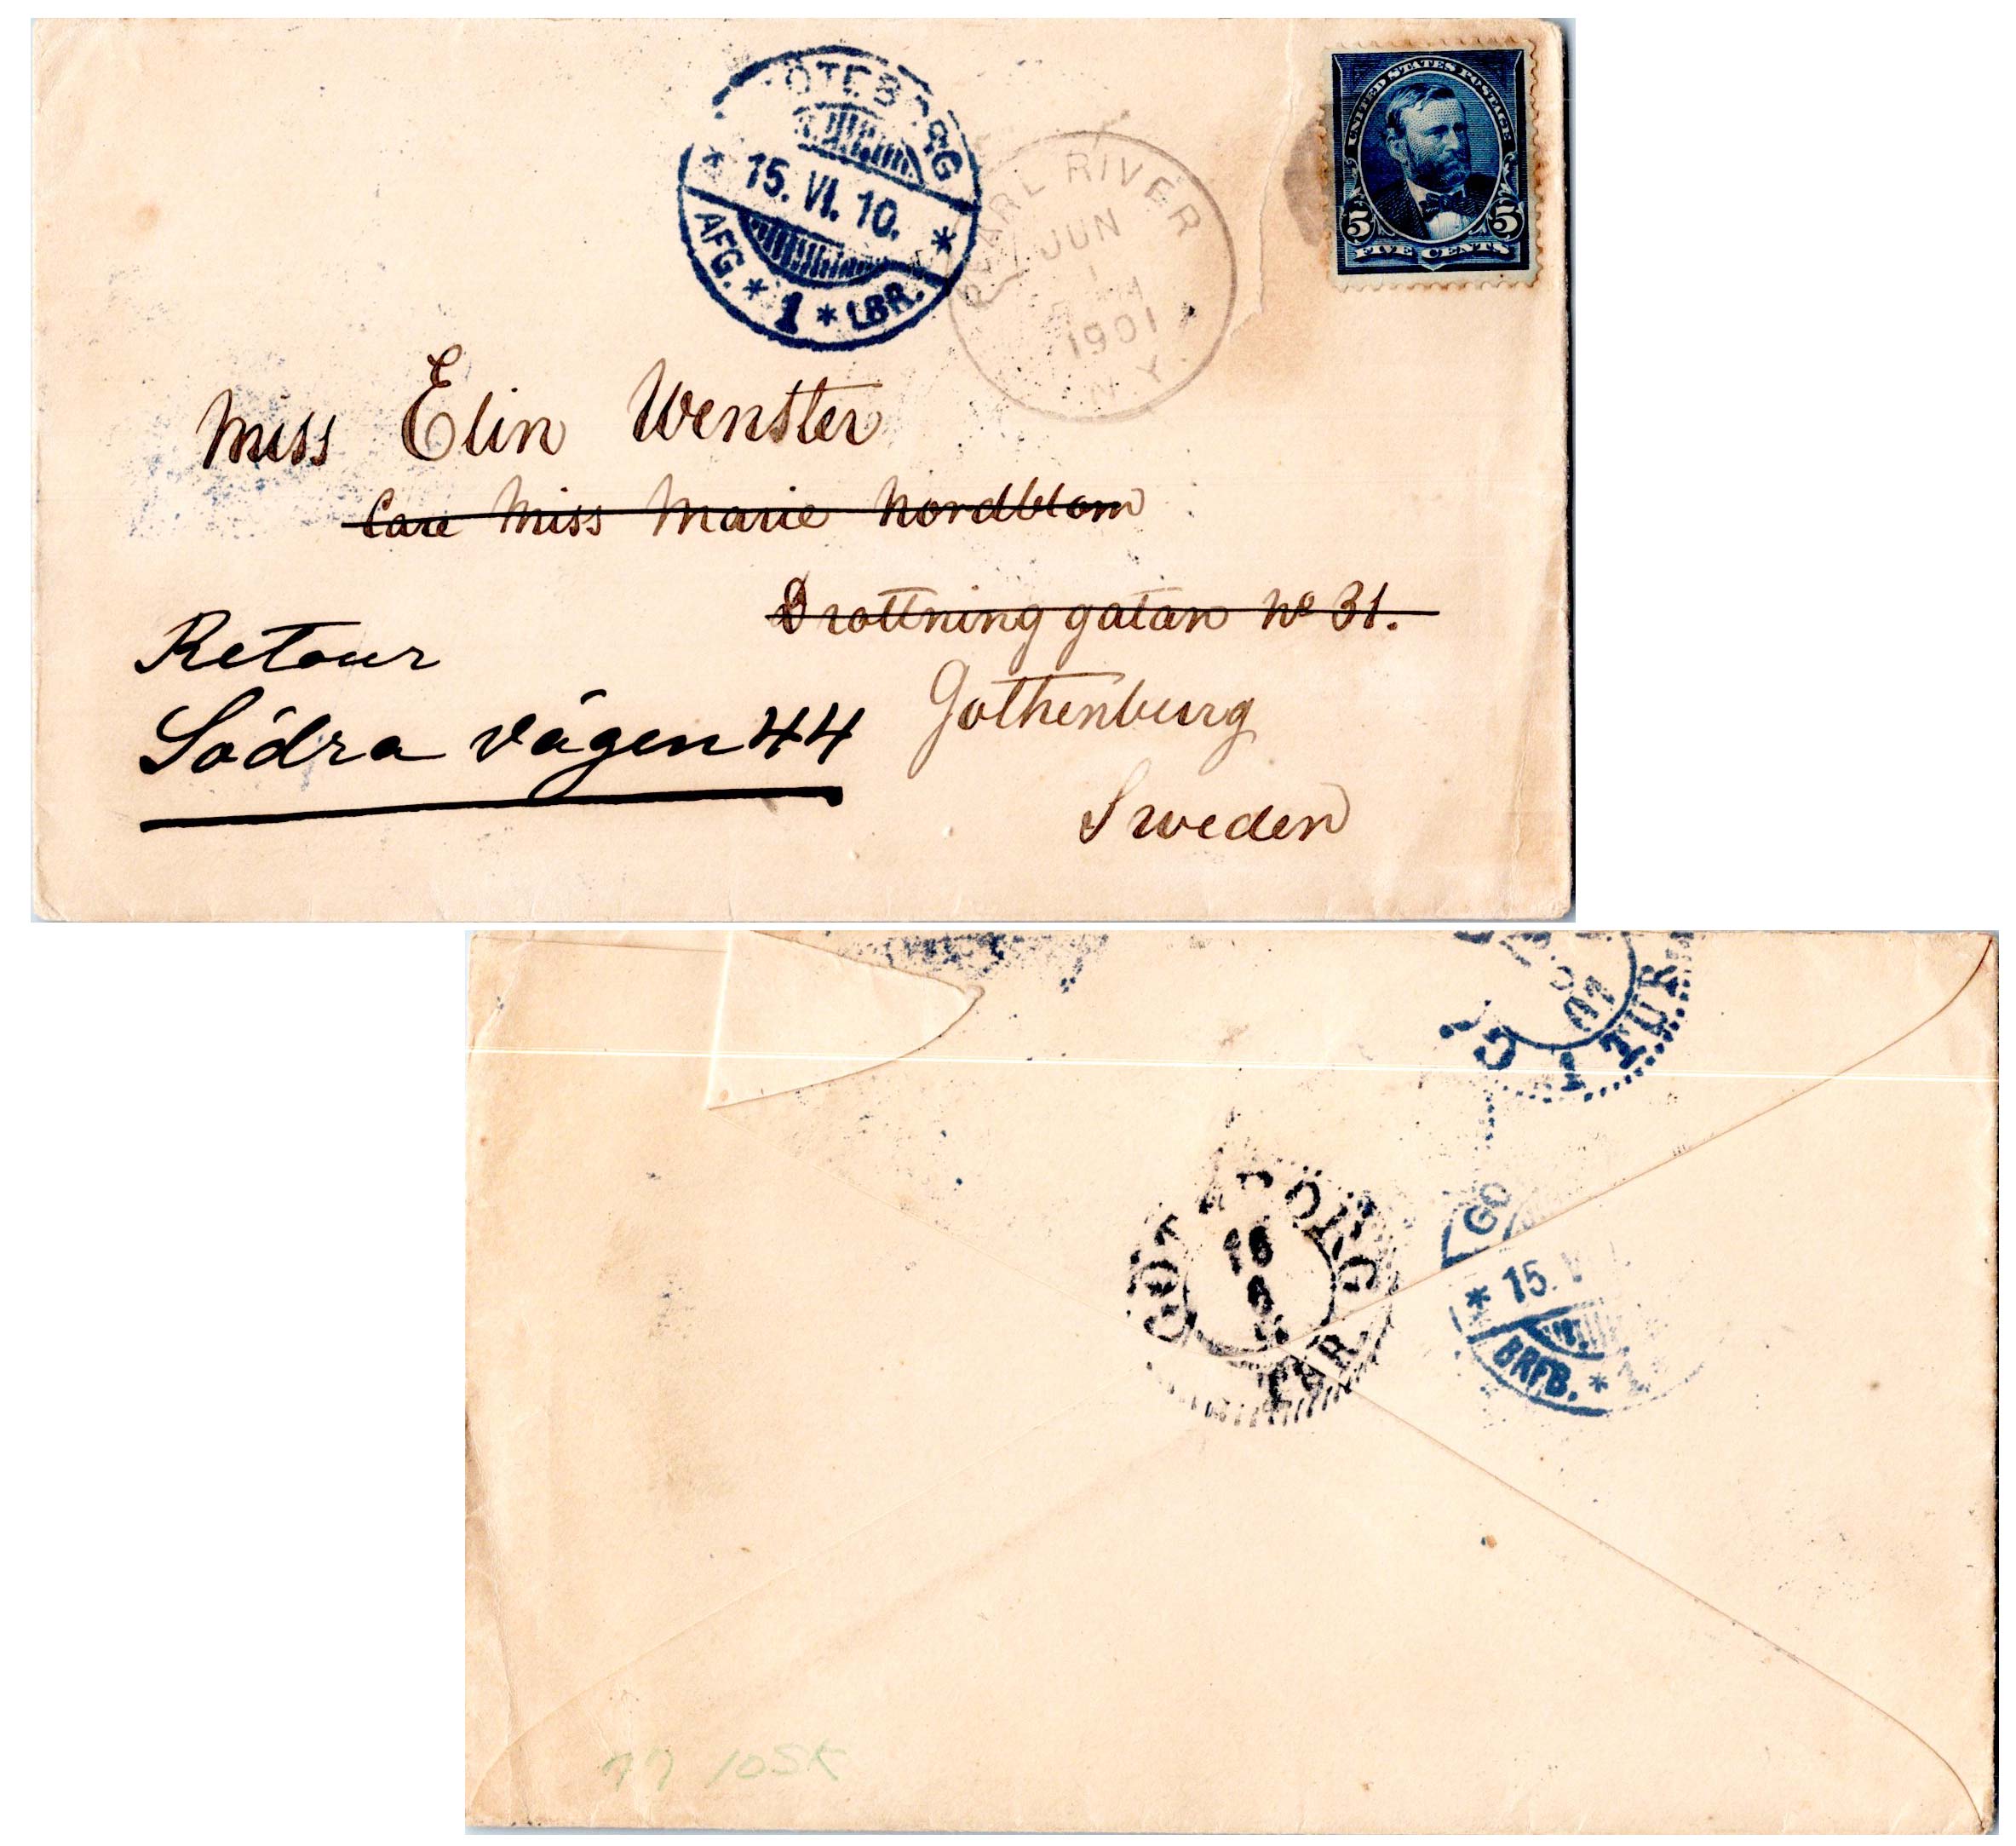 GÖTEBORG
* 15. VI. 10. *
AFG. * 1 * LBR.
PEARL RIVER
JUN
1
1901
N.Y.
UNITED STATES POSTAGE
5 5
FIVE CENTS
Miss Elin Wenster
Care Miss Marie Nordblom
Drottning gatan No 31.
Gothenburg
Sweden
Retour
Södra vägen 44
01
1 TUR
GÖTEBORG
16
6
TUR
GÖ
* 15. V
BRFB. * 1
77 10SK